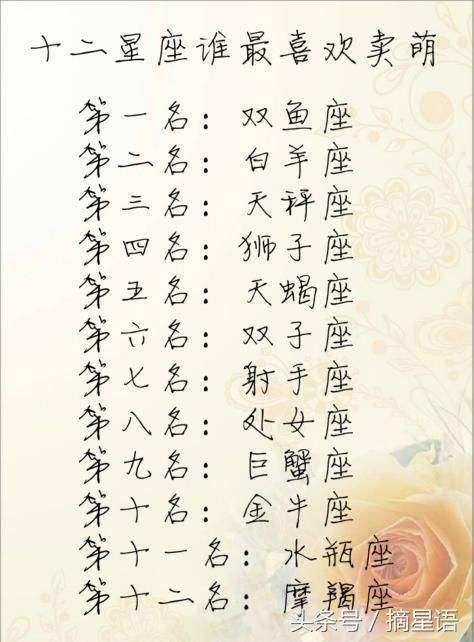 十二星座谁最喜欢卖萌
第一名：双鱼座
第二名：白羊座
第三名：天秤座
第四名：狮子座
第五名：天蝎座
第六名：双子座
第七名：射手座
第八名：处女座
第九名：巨蟹座
第十名：金牛座
第十一名：水瓶座
第十二名：摩羯座
头条号/摘星语